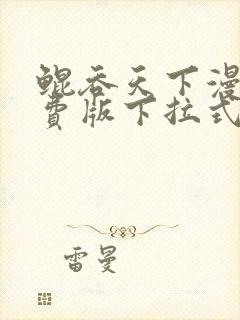 鲲吞天下漫
费版下拉式
雷曼